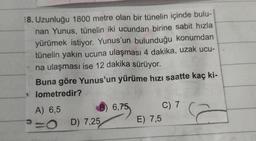 8. Uzunluğu 1800 metre olan bir tünelin içinde bulu-
nan Yunus, tünelin iki ucundan birine sabit hızla
yürümek istiyor. Yunus'un bulunduğu konumdan
tünelin yakın ucuna ulaşması 4 dakika, uzak ucu-
na ulaşması ise 12 dakika sürüyor.
Buna göre Yunus'un yürüme hızı saatte kaç ki-
lometredir?
A) 6,5 B) 6,75 C) 7
D) 7,25 E) 7,5